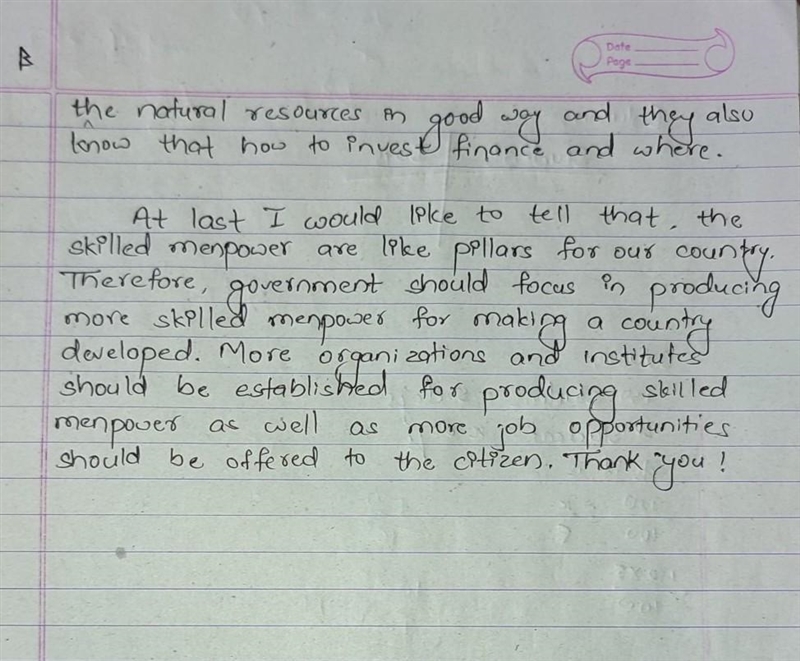 B
Date
Page
the natural resources in good way and they also
know that how to invest finance and where.
At last I would like to tell that, the
skilled menpower are like pillars for our country.
Therefore, government should focus in producing
more skilled menpower for making a country
developed. More organizations and institutes
should be established for producing skilled
menpower as well as more job opportunities
should be offered to the citizen. Thank you!